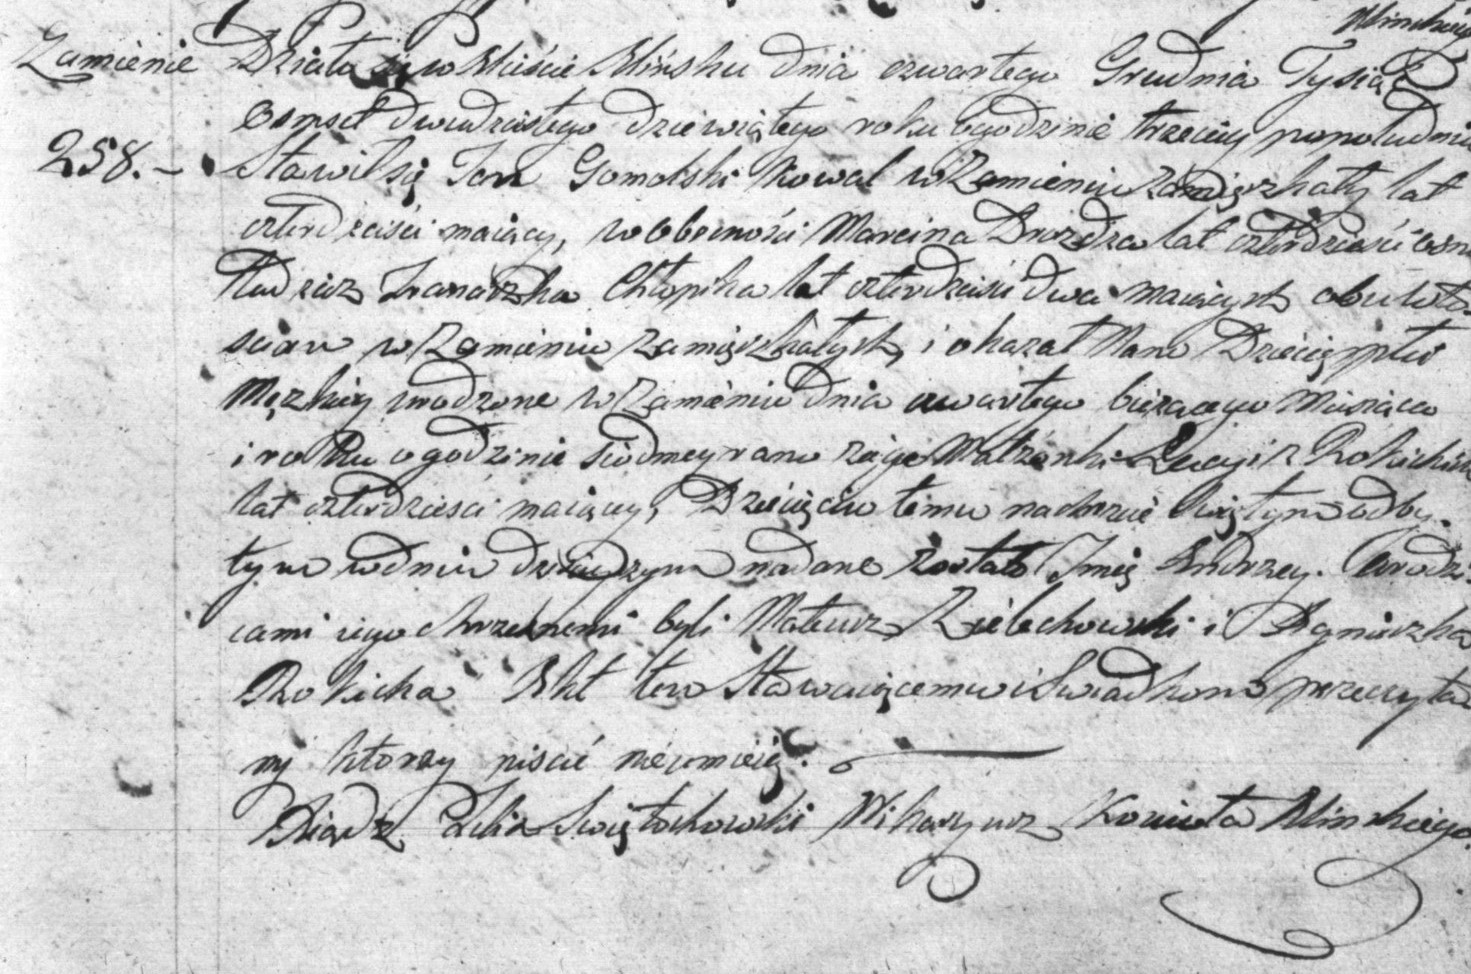 Mińskiego
Zamienie Działo się w Mieście Mińsku dnia czwartego Grudnia Tysiąc
osmset dwudziestego dziewiątego roku o godzinie trzeciey popołudniu
258. - Stawił się Jan Gomolski Kowal w Zamieniu zamięszkały lat
czterdzieści maiący, w obecności Marcina Drozdza lat czterdzieści ośm
tudzież Franciszka Chłopika lat czterdzieści dwa maiących obu Wło-
ścian w Zamieniu zamięszkałych, i okazał Nam Dziecię płci
Męzkiey urodzone w Zamieniu dnia czwartego bieżącego Miesiąca
i roku o godzinie siódmey rano z iego Małżonki Łucyi z Rokickich
lat czterdzieści maiącey, Dziecięciu temu na chrzcie Świętym odby-
tym w dniu dzisieyszym nadane zostało Imię Andrzey. Rodzi-
cami iego chrzestnemi byli Mateusz Zielechowski i Agnieszka
Rokicka Akt ten Stawaiącemu i Świadkom przeczyta-
ny którzy pisać nieumieią.
Xiądz Felix Świętochowski Wikaryusz Kościoła Mińskiego